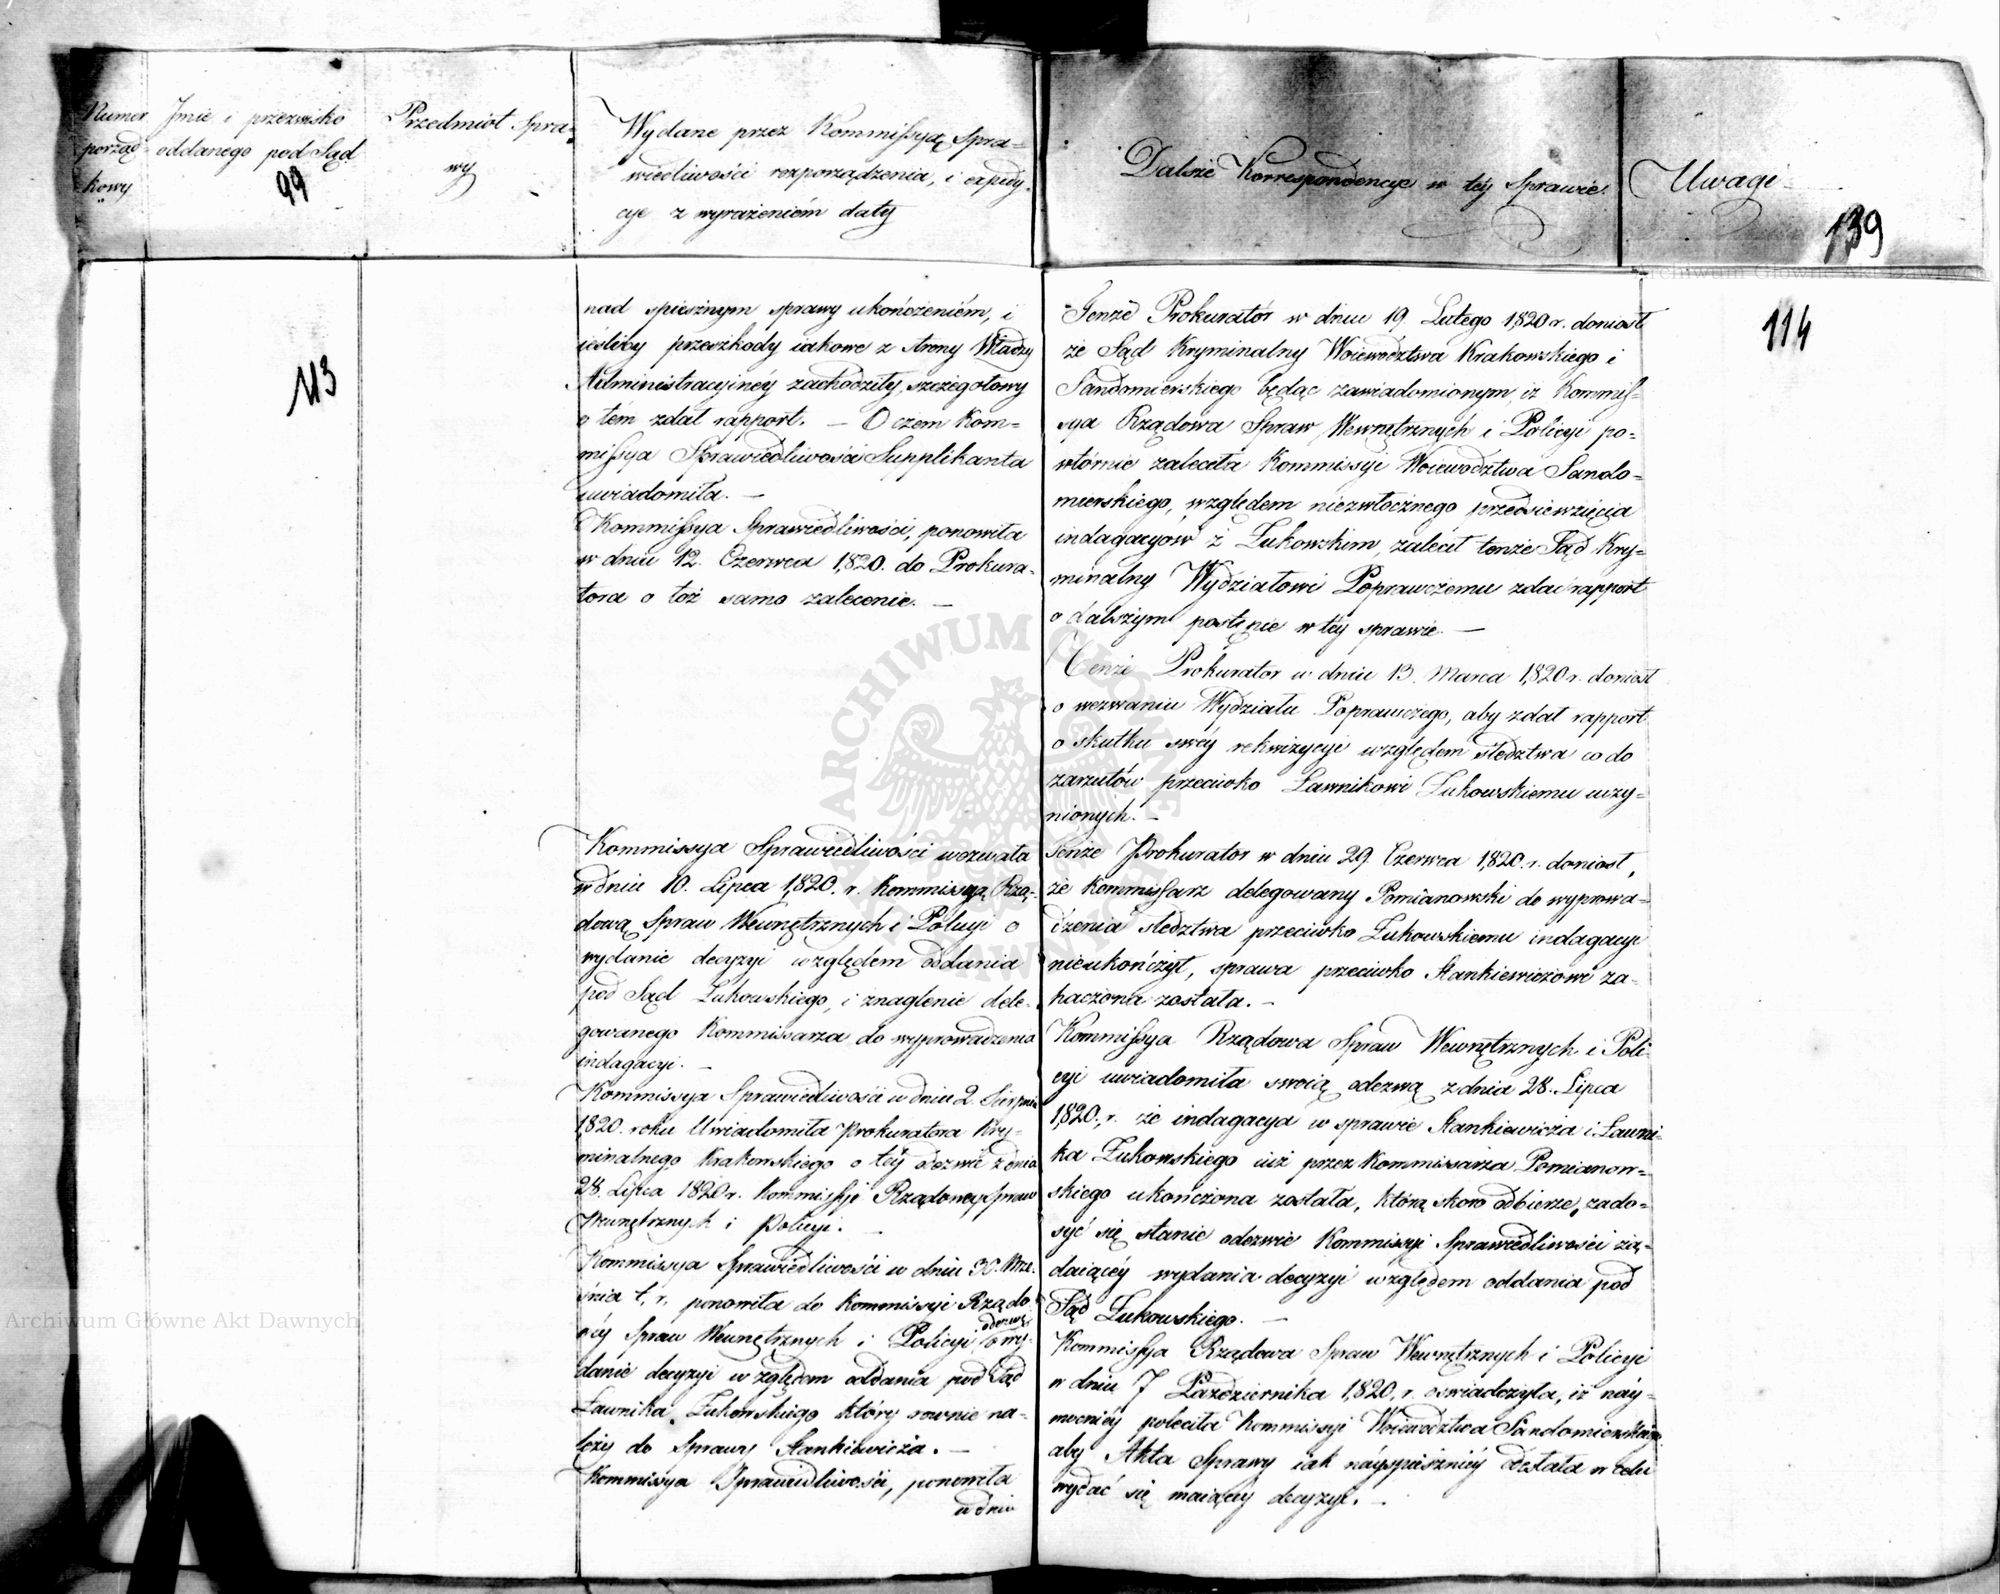 Numer
porząd-
kowy
Jmie i przezwisko
oddanego pod Sąd
99
Przedmiot Spra-
wy
Wydane przez Kommissyą Spra-
wiedliwości rozporządzenia, i expedy-
cye z wyrażeniem daty
Dalsze Korrespondencye w tey Sprawie.
Uwagi
139
113
nad spiesznym sprawy ukończeniem, i
ieśliby przeszkody iakowe z strony Władzy
Administracyiney zachodziły, szczegołowy
o tem zdał rapport. — O czem Kom-
missya Sprawiedliwości Supplikanta
uwiadomiła. —
Kommissya Sprawiedliwości, ponowiła
w dniu 12. Czerwca 1820. do Prokura-
tora o toż samo zalecenie. —
Kommissya Sprawiedliwości wezwała
w dniu 10. Lipca 1820. r. Kommissyą Rzą-
dową Spraw Wewnętrznych i Policyi o
wydanie decyzyi względem oddania
pod Sąd Łukowskiego, i znaglenie dele-
gowanego Kommissarza do wyprowadzenia
indagacyi. —
Kommissya Sprawiedliwości w dniu 2. Sierpnia
1820. roku Uwiadomiła Prokuratora Kry-
minalnego Krakowskiego o tey odezwie z dnia
28. Lipca 1820 r. Kommissyi Rządowey Spraw
Wewnętrznych i Policyi. —
Kommissya Sprawiedliwości w dniu 30. Wrze-
śnia t. r. ponowiła do Kommissyi Rządo-
wey Spraw Wewnętrznych i Policyi odezwę o wy-
danie decyzyi względem oddania pod Sąd
Ławnika Łukowskiego który rownie na-
leży do Sprawy Stankiewicza. —
Kommissya Sprawiedliwości, ponowiła
w dniu
Tenże Prokurator w dniu 19. Lutego 1820 r. doniosł
że Sąd Kryminalny Woiewodztwa Krakowskiego i
Sandomierskiego będąc zawiadomionym, iż Kommis-
sya Rządowa Spraw Wewnętrznych i Policyi po-
wtórnie zaleciła Kommissyi Woiewodztwa Sando-
mierskiego, względem niezwłocznego przedsiewzięcia
indagacyow z Łukowskim, zalecił tenże Sąd Kry-
minalny Wydziałowi Poprawczemu zdać rapport
o dalszym postępie w tey sprawie. —
Tenże Prokurator w dniu 13. Marca 1820 r. doniosł
o wezwaniu Wydziału Poprawczego, aby zdał rapport
o skutku swey rekwizycyi względem śledztwa co do
zarzutów przeciwko Ławnikowi Łukowskiemu uczy-
nionych. —
Tenże Prokurator w dniu 29. Czerwca 1820. r. doniosł,
że Kommissarz delegowany Pomianowski do wyprowa-
dzenia śledztwa przeciwko Łukowskiemu indagacyi
nieukończył, sprawa przeciwko Stankiewiczowi za-
haczona została. —
Kommissya Rządowa Spraw Wewnętrznych i Poli-
cyi uwiadomiła swoią odezwą z dnia 28. Lipca
1820. r. że indagacya w sprawie Stankiewicza i Ławni-
ka Łukowskiego iuż przez Kommissarza Pomianow-
skiego ukończona została, którą skoro odbierze, zado-
syć się stanie odezwie Kommissyi Sprawiedliwości żą-
daiącey wydania decyzyi względem oddania pod
Sąd Łukowskiego. —
Kommissya Rządowa Spraw Wewnętrznych i Policyi
w dniu 7 Października 1820. r. oswiadczyła, iż nay-
mocniey poleciła Kommissyi Woiewodztwa Sandomierskiego
aby Akta Sprawy iak nayspieszniey odesłała w celu
wydać się maiącey decyzyi. —
114
Archiwum Główne Akt Dawnych
Archiwum Główne Akt Dawnych